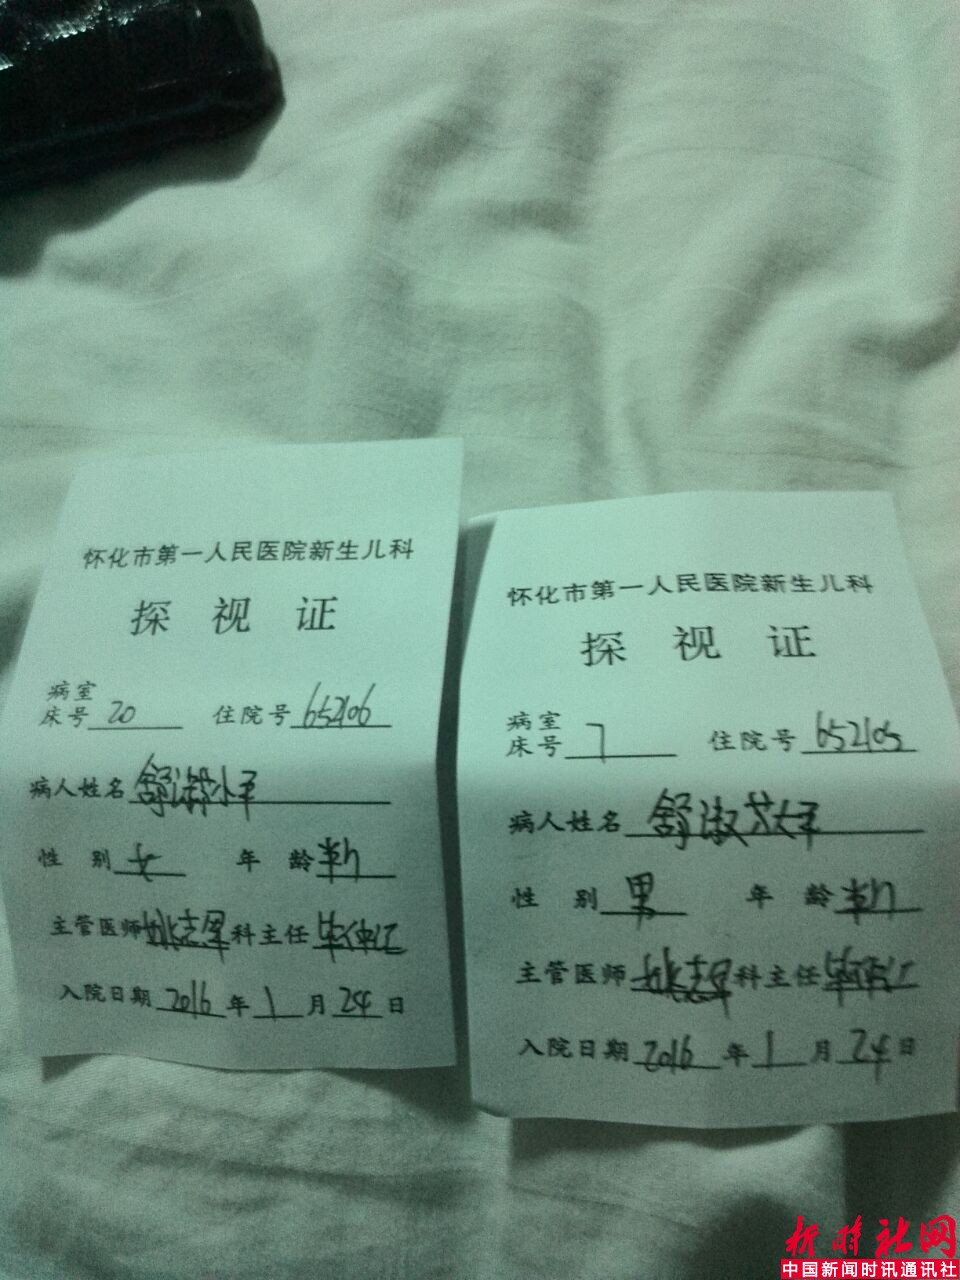 怀化市第一人民医院新生儿科
探视证
病室
床号 20 住院号 652106
病人姓名 舒淑芬小毛
性别 女 年龄
主管医师 姚志军 科主任
入院日期 2016 年 1 月 24 日
怀化市第一人民医院新生儿科
探视证
病室
床号 7 住院号 652105
病人姓名 舒淑芬大毛
性别 男 年龄
主管医师 姚志军 科主任
入院日期 2016 年 1 月 24 日
新时社网
中国新闻时讯通讯社